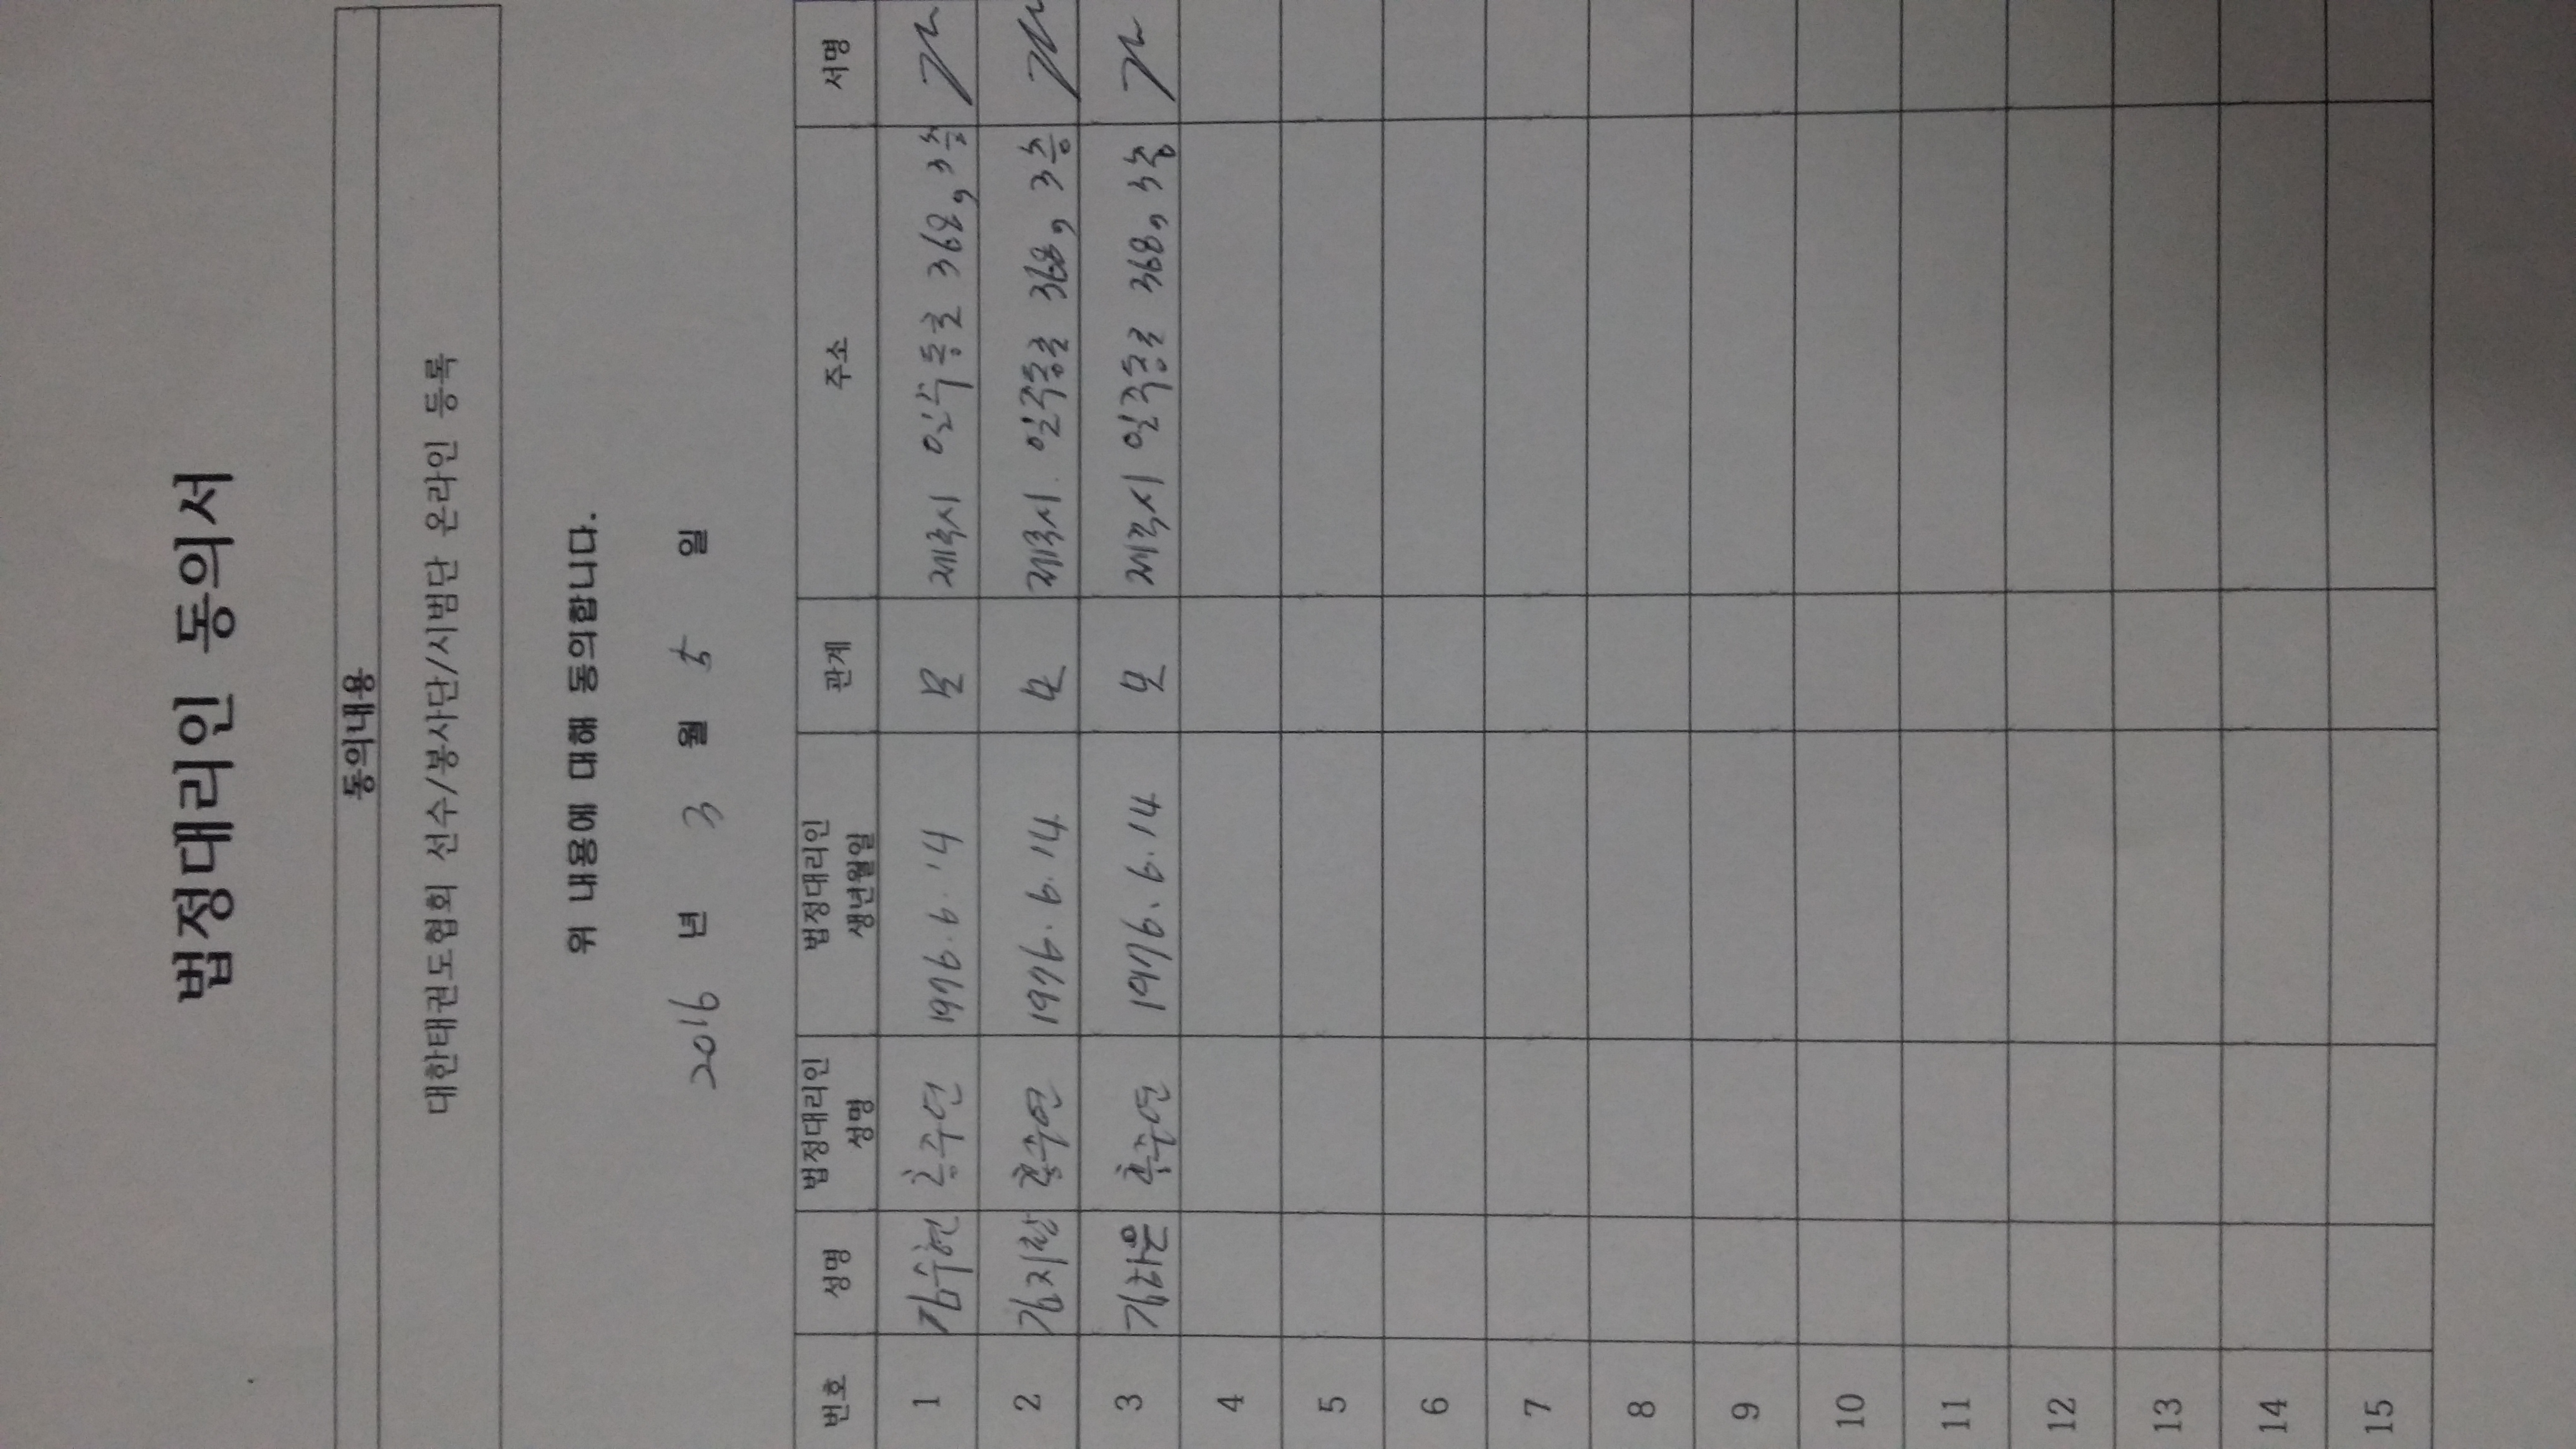 법정대리인 동의서
동의내용
대한태권도협회 선수/봉사단/시범단 온라인 등록
위 내용에 대해 동의합니다.
2016 년 3 월 5 일
번호 성명 법정대리인 성명 법정대리인 생년월일 관계 주소 서명
1 김수현 홍주연 1976.6.14 모 제주시 연북로 368, 3층
2 김지환 홍주연 1976.6.14 모 제주시 368, 3층
3 김하은 홍주연 1976.6.14 모 제주시 368, 3층
4
5
6
7
8
9
10
11
12
13
14
15